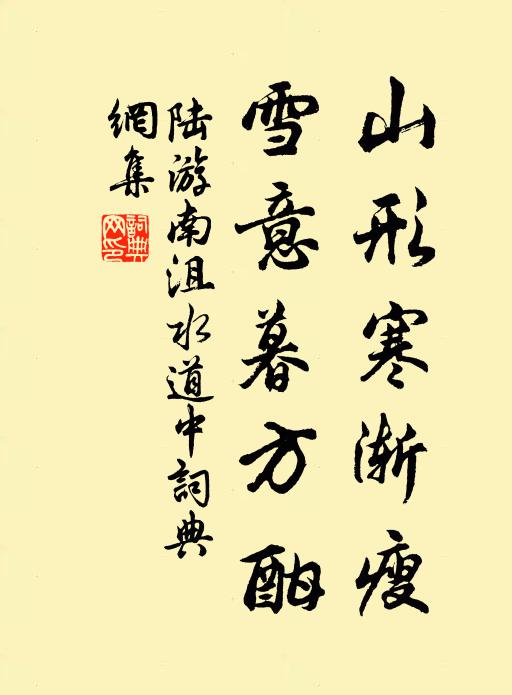 山形寒漸瘦
雪意暮方酣
陆游南沮水道中詞典
網集
詞典
网印